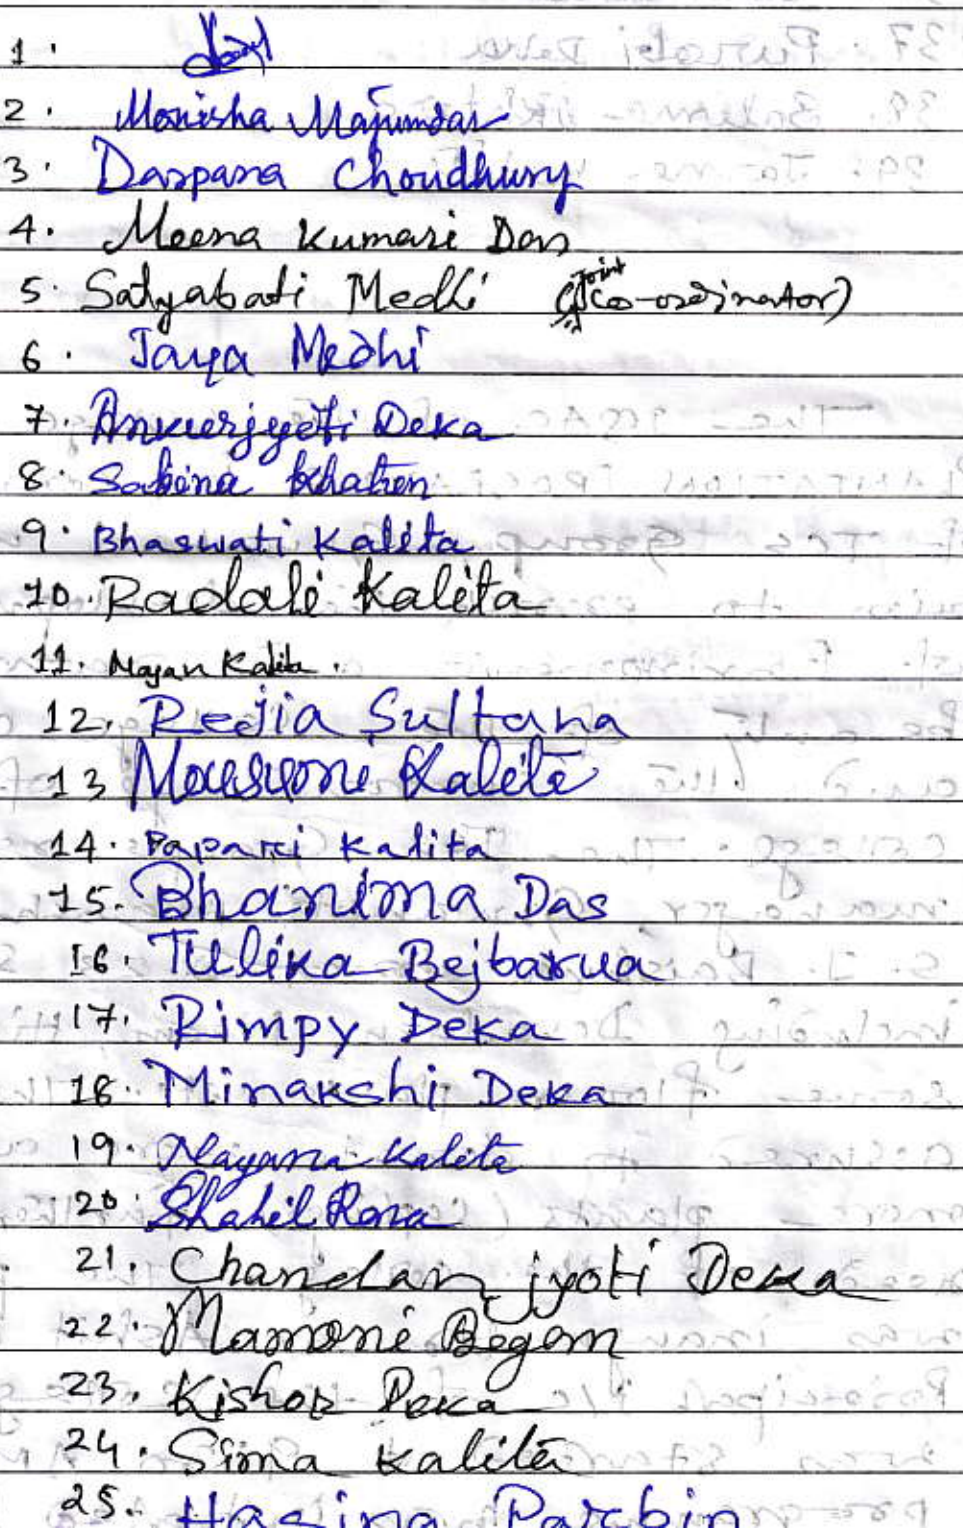 1.
2. Monisha Majumdar
3. Darpana Choudhury
4. Meena Kumari Das
5. Satyabati Medhi (Joint Co-ordinator)
6. Jaya Medhi
7. Ankurjyoti Deka
8. Sabina Khatun
9. Bhaswati Kalita
10. Kalita
11. Nayan Kalita.
12. Rejia Sultana
13 Mousumi Kalita
14. Papari Kalita
15. Bhanima Das
16. Tulika Bejbarua
17. Rimpy Deka
18. Minakshi Deka
19. Nayana Kalita
20 Shahil
21. Chandan jyoti Deka
22. Mamoni Begom
23. Kishor Deka
24. Sima Kalita
25. Hasina Parbin